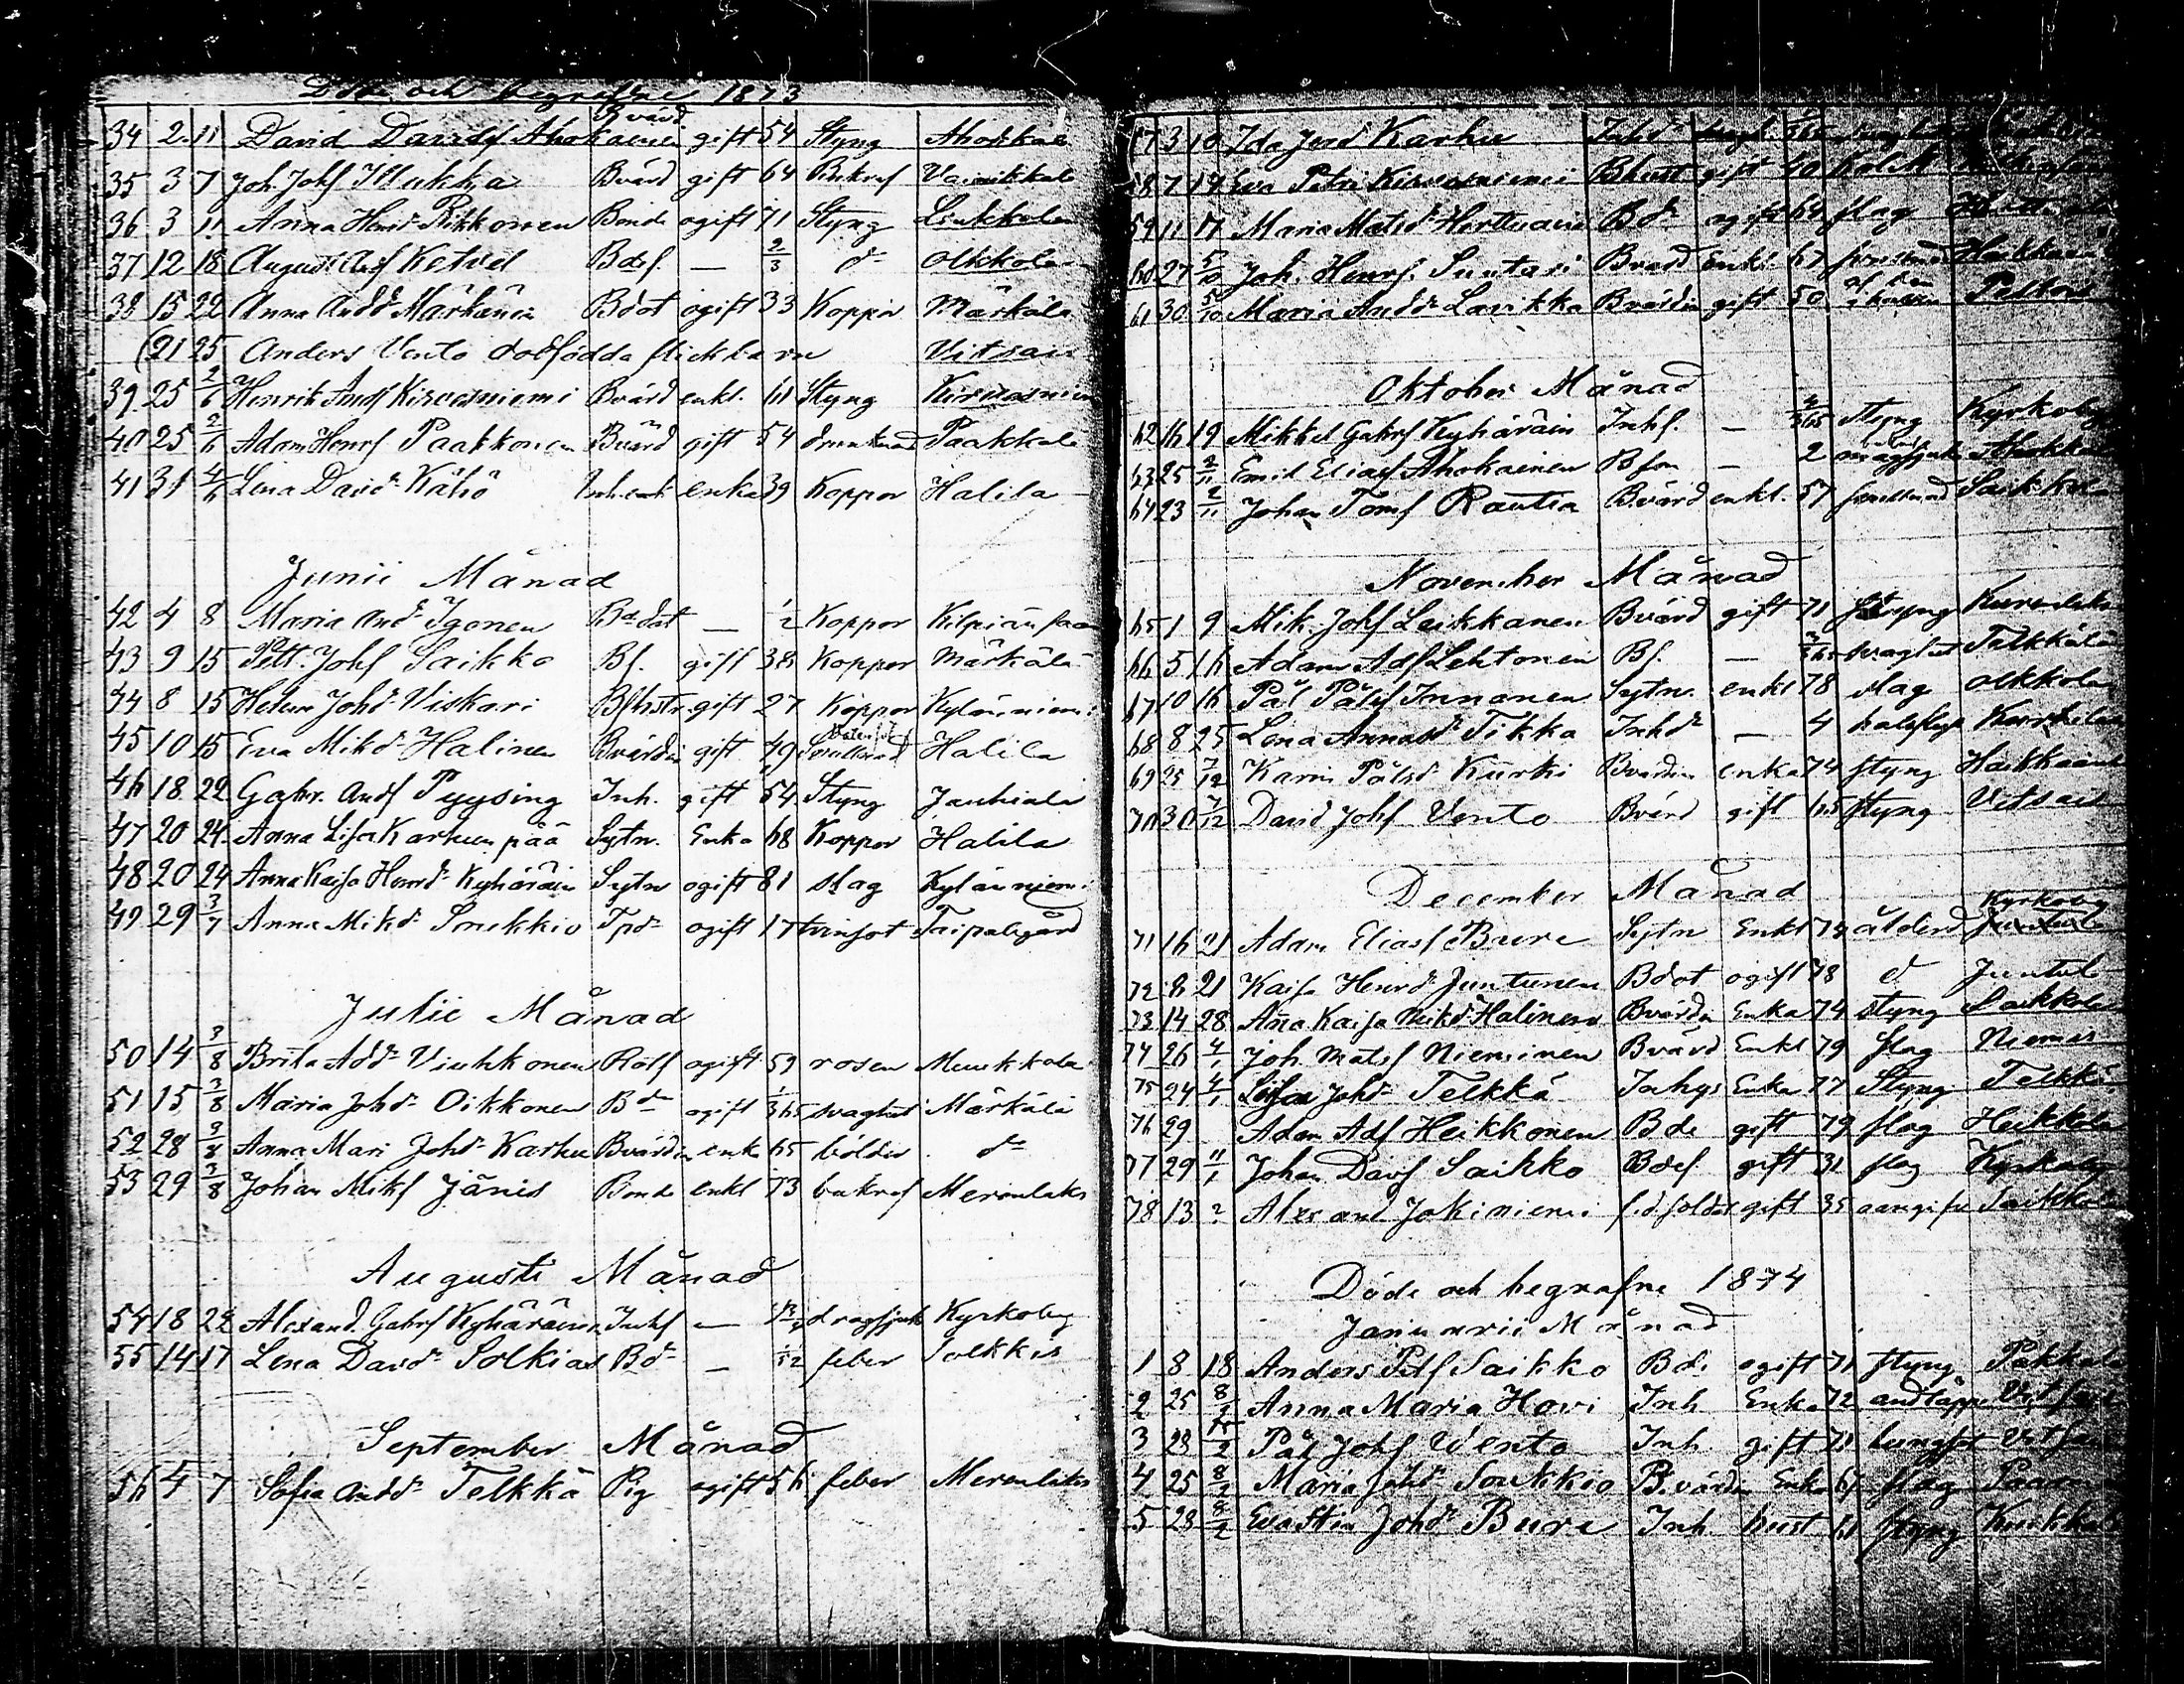 Döde och begrafne 1873
34 2 11 David Davidsf Ahokainen Bvärd gift 54 Styng Ahokkala
35 3 7 Joh. Johsf Mukka Bvärd gift 64 Bukref Vainikkala
36 3 11 Anna Henrd Pikkonen Bonde ogift 71 Styng Laukkala
37 12 18 August Asf Ketvel Bdsf. — 2/3 do Olkkola
38 15 22 Anna Andd Märkänen Bdot ogift 33 Koppor Märkälä
(21 25 Anders Vento dodfödda flickbarn Vitsain
39 25 2/6 Henrik Andsf Kirvesniemi Bvärd enkl. 61 Styng Kirvesniem
40 25 2/6 Adam Henrsf Paakkonen Bvärd gift 54 drunknad Paakkola
41 31 4/6 Lena Davd Kähö Inh.enk enka 39 Koppor Halila
Junii Månad
42 4 8 Maria Andd Igonen Bddot — 1/2 Koppor Kilpiänsaa
43 9 15 Pett. Johsf Saikko Bf. gift 38 Koppor Märkälä
44 8 15 Helena Johd Viskari Bfhstr. gift 27 Koppor Kyläniemi
45 10 15 Eva Mikd Halinen Bvärdin gift 49 Halila
46 18 22 Gabr. Andsf Pyysing Inh. gift 54 Styng Jauhiala
47 20 24 Anna Lisa Karhunpää Sytn. Enka 68 Koppor Halila
48 20 24 Anna Kaisa Henrd Kyhäräin Sytn ogift 81 slag Kyläniem.
49 29 3/7 Anna Mikd Soukkio Tpd ogift 17 tvinsot Taipalegård
Julii Månad
50 14 3/8 Brita Add Viuhkonen Rotf ogift 59 rosen Muukkola
51 15 3/8 Maria Johd Oikkonen Bd ogift 1/365 svaghet Märkälä
52 28 3/8 Anna Mari Johd Karhu Bvärdin enka 65 bölder do
53 29 3/8 Johan Miksf Jänis Bonde enkl 73 bukref Merenlaks
Augusti Månad
54 18 24 Alexand. Gabrsf Kyhäräinen Inhsf — dragsjuk Kyrkoby
55 14 17 Lena Davd Solkias Bd — 1/52 feber Solkkis
September Månad
56 4 7 Sofia Andd Telkkä Pig ogift 56 feber Merenlaks
57 3 10 Ida Josd Karhu Inhd
58 7 14 Eva Petri Kirvesniemi Bhust gift 40
59 11 17 Maria Matsd Herttuain Bd ogift 64 slag
60 27 5/10 Joh. Henrsf. Suutari Bvärd Enkl 67
61 30 5/10 Maria Andd Lavikka Bvärdin gift 50
Oktober Månad
62 16 19 Mikkel Gabrsf Kyhäräin Inhsf. — Styng Kyrkoby
63 25 2/11 Emil Eliasf Ahokainen Bson — 2 Ahokkala
64 23 2/11 Johan Tomsf Rautia Bvärd enkl. 57 Saikkola
November Månad
65 1 9 Mik. Johsf Leikkanen Bvärd gift 71 Styng
66 5 16 Adam Adsf Lehtonen Bf. — svaghet Telkkälä
67 10 16 Pål Pålsf Innanen Sytn. enkl 78 slag Olkkola
68 8 25 Lena Annasd Tikka Inhd — 4 Kurkila
69 25 7/12 Karin Pålsd Kurki Bvärdin enka 74 styng
70 30 7/12 David Johsf Vento Bvärd gift 65 styng Vitsai
December Månad
71 16 21 Adam Eliasf Bure Sytn Enkl 79 ålderd Kyrkoby
72 8 21 Kaisa Henrd Juntunen Bdot ogift 78 d Juntul
73 14 28 Anna Kaisa Mikd Halinen Bvärdin Enka 74 styng Saikkola
74 26 4/1 Joh. Matsf Nieminen Bvärd Enkl 79 slag Niemis
75 24 4/1 Lisa Johd Telkkä Inhys Enka 77 Styng Telkkä
76 29 Adam Adsf Heikkonen Bde gift 79 slag Heikkola
77 29 11/1 Johan Davsf Saikko Bdsf gift 31 slag Kyrkoby
78 13 ? Alexand Jokiniemi f.d. soldat gift 35 Saikkola
Döde och begrafne 1874
Januarii Månad
1 8 18 Anders Petsf Saikko Bde ogift 71 styng Pakkala
2 25 8/2 Anna Maria Hovi Inh Enka 72 andtäppa
3 28 15/2 Pål Johsf Vento Inh gift 71 lungsot
4 25 8/2 Maria Johd Soukkio Bvärdin Enka 67 slag
5 28 8/2 Eva Stin Johd Bure Inh hust 61 styng